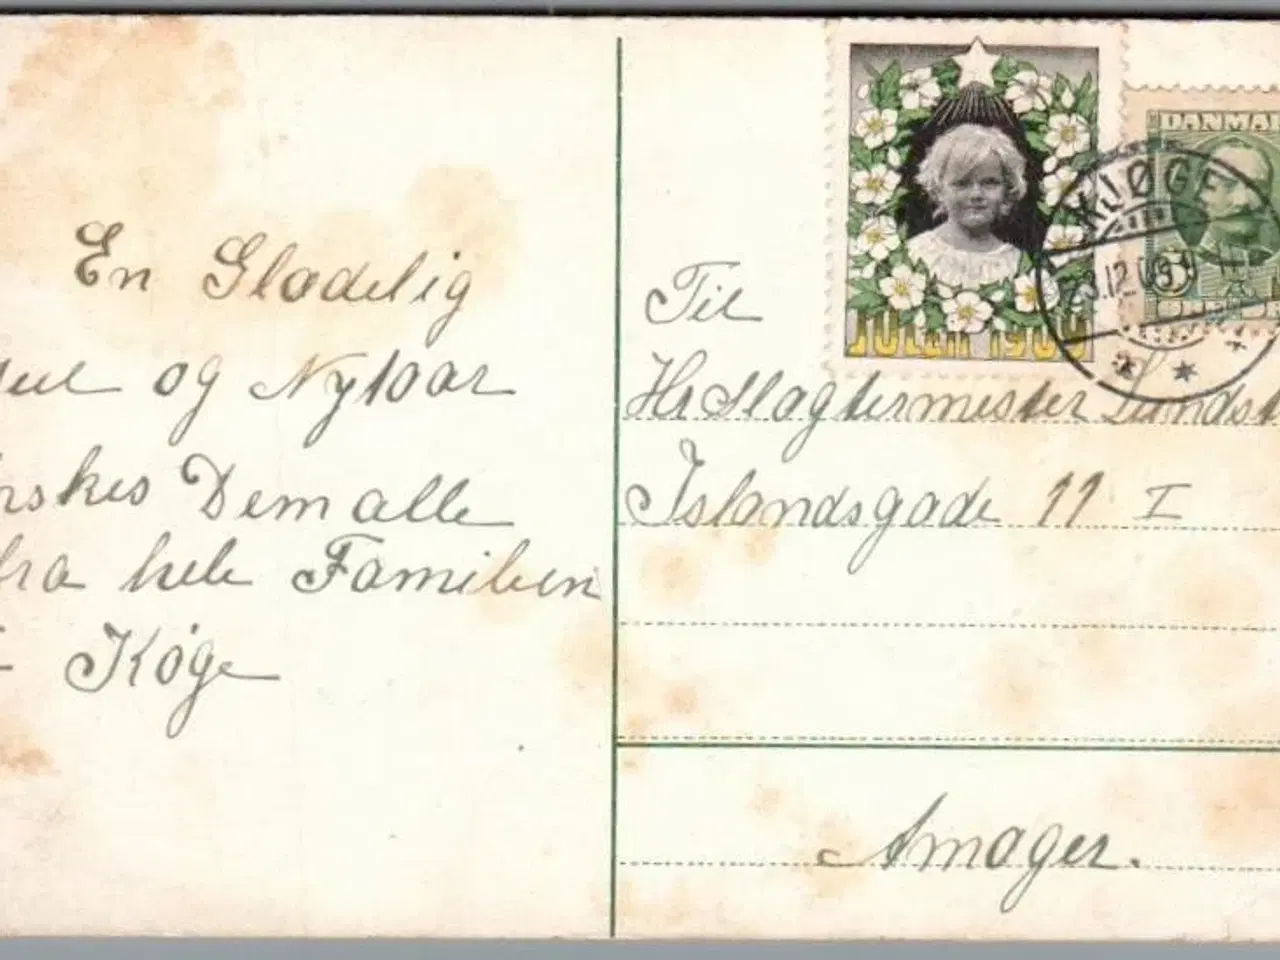 En Gladelig
Jul og Nytaar
ønskes Dem alle
fra hele Familien
i Køge
JULEN 1909
DANMA
KJØGE
3.12.09
Til
Hr Slagtermester Lundst
Islandsgade 11 I
Amager.